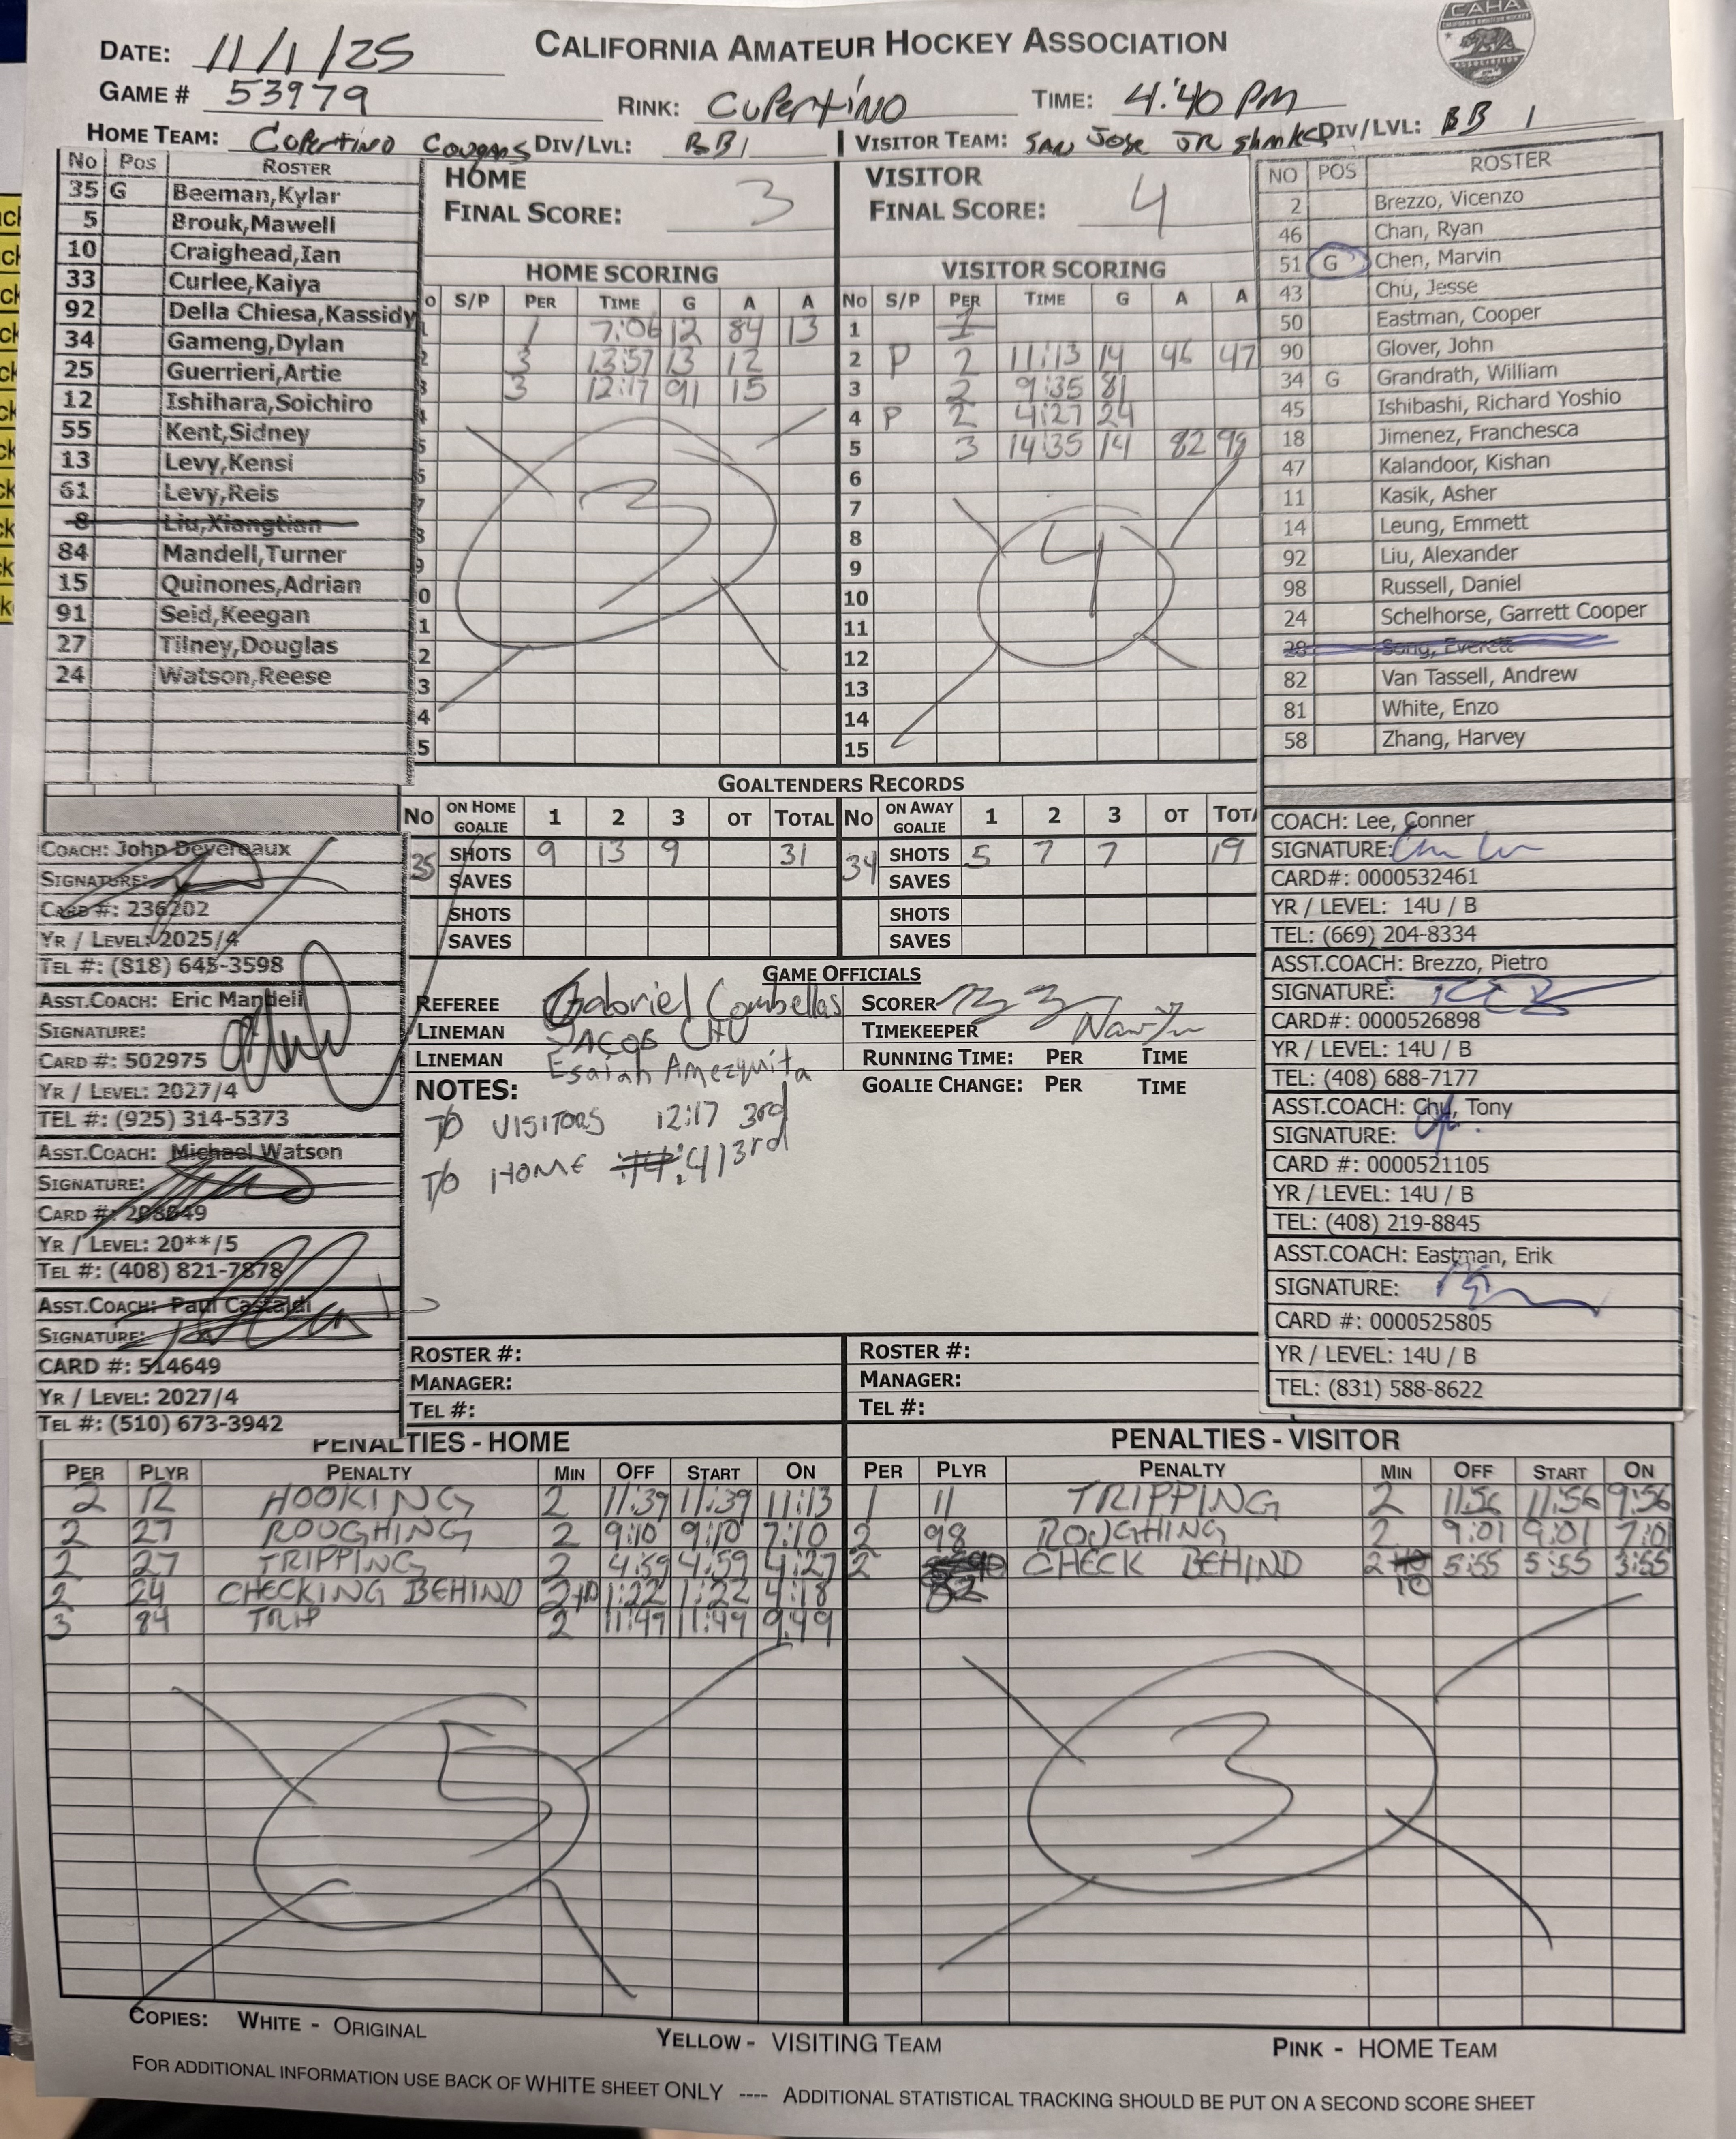 CAHA
CALIFORNIA AMATEUR HOCKEY ASSOCIATION
DATE: 11/1/25
GAME # 53979
RINK: CUPERTINO
TIME: 4:40 PM
HOME TEAM: Cupertino Cougars DIV/LVL: BB1
VISITOR TEAM: SAN JOSE JR Sharks DIV/LVL: BB 1
No Pos ROSTER
35 G Beeman,Kylar
5 Brouk,Mawell
10 Craighead,Ian
33 Curlee,Kaiya
92 Della Chiesa,Kassidy
34 Gameng,Dylan
25 Guerrieri,Artie
12 Ishihara,Soichiro
55 Kent,Sidney
13 Levy,Kensi
61 Levy,Reis
8 Liu,Xiangtian
84 Mandell,Turner
15 Quinones,Adrian
91 Seid,Keegan
27 Tilney,Douglas
24 Watson,Reese
HOME
FINAL SCORE: 3
HOME SCORING
o S/P PER TIME G A A
1 1 7:06 12 84 13
2 3 13:57 13 12
3 3 12:17 91 15
4
5
6
7
8
9
0
1
2
3
4
5
3
VISITOR
FINAL SCORE: 4
VISITOR SCORING
No S/P PER TIME G A A
1 1
2 P 2 11:13 14 46 47
3 2 9:35 81
4 P 2 4:27 24
5 3 14:35 14 82 98
6
7
8
9
10
11
12
13
14
15
4
NO POS ROSTER
2 Brezzo, Vicenzo
46 Chan, Ryan
51 G Chen, Marvin
43 Chu, Jesse
50 Eastman, Cooper
90 Glover, John
34 G Grandrath, William
45 Ishibashi, Richard Yoshio
18 Jimenez, Franchesca
47 Kalandoor, Kishan
11 Kasik, Asher
14 Leung, Emmett
92 Liu, Alexander
98 Russell, Daniel
24 Schelhorse, Garrett Cooper
28 Song, Everett
82 Van Tassell, Andrew
81 White, Enzo
58 Zhang, Harvey
GOALTENDERS RECORDS
No ON HOME GOALIE 1 2 3 OT TOTAL No ON AWAY GOALIE 1 2 3 OT TOTA
35 SHOTS 9 13 9 31 34 SHOTS 5 7 7 19
SAVES SAVES
SHOTS SHOTS
SAVES SAVES
COACH: John Devereaux
SIGNATURE:
CARD #: 236202
YR / LEVEL: 2025/4
TEL #: (818) 645-3598
ASST.COACH: Eric Mandell
SIGNATURE:
CARD #: 502975
YR / LEVEL: 2027/4
TEL #: (925) 314-5373
ASST.COACH: Michael Watson
SIGNATURE:
CARD #:
YR / LEVEL: 20**/5
TEL #: (408) 821-7878
ASST.COACH: Paul Castaldi
SIGNATURE:
CARD #: 514649
YR / LEVEL: 2027/4
TEL #: (510) 673-3942
GAME OFFICIALS
REFEREE Gabriel Combellas SCORER
LINEMAN JACOB CHU TIMEKEEPER
LINEMAN Esaiah Amezquita RUNNING TIME: PER TIME
NOTES: GOALIE CHANGE: PER TIME
T/O VISITORS 12:17 3rd
T/O HOME :41 3rd
ROSTER #: ROSTER #:
MANAGER: MANAGER:
TEL #: TEL #:
COACH: Lee, Conner
SIGNATURE:
CARD#: 0000532461
YR / LEVEL: 14U / B
TEL: (669) 204-8334
ASST.COACH: Brezzo, Pietro
SIGNATURE:
CARD#: 0000526898
YR / LEVEL: 14U / B
TEL: (408) 688-7177
ASST.COACH: Chu, Tony
SIGNATURE:
CARD #: 0000521105
YR / LEVEL: 14U / B
TEL: (408) 219-8845
ASST.COACH: Eastman, Erik
SIGNATURE:
CARD #: 0000525805
YR / LEVEL: 14U / B
TEL: (831) 588-8622
PENALTIES - HOME
PER PLYR PENALTY MIN OFF START ON
2 12 HOOKING 2 11:39 11:39 11:13
2 27 ROUGHING 2 9:10 9:10 7:10
2 27 TRIPPING 2 4:59 4:59 4:27
2 24 CHECKING BEHIND 2+10 1:22 1:22 4:18
3 84 TRIP 2 11:49 11:49 9:49
5
PENALTIES - VISITOR
PER PLYR PENALTY MIN OFF START ON
1 11 TRIPPING 2 11:56 11:56 9:56
2 98 ROUGHING 2 9:01 9:01 7:01
2 82 CHECK BEHIND 2 10 5:55 5:55 3:55
3
COPIES: WHITE - ORIGINAL
YELLOW - VISITING TEAM
PINK - HOME TEAM
FOR ADDITIONAL INFORMATION USE BACK OF WHITE SHEET ONLY ---- ADDITIONAL STATISTICAL TRACKING SHOULD BE PUT ON A SECOND SCORE SHEET